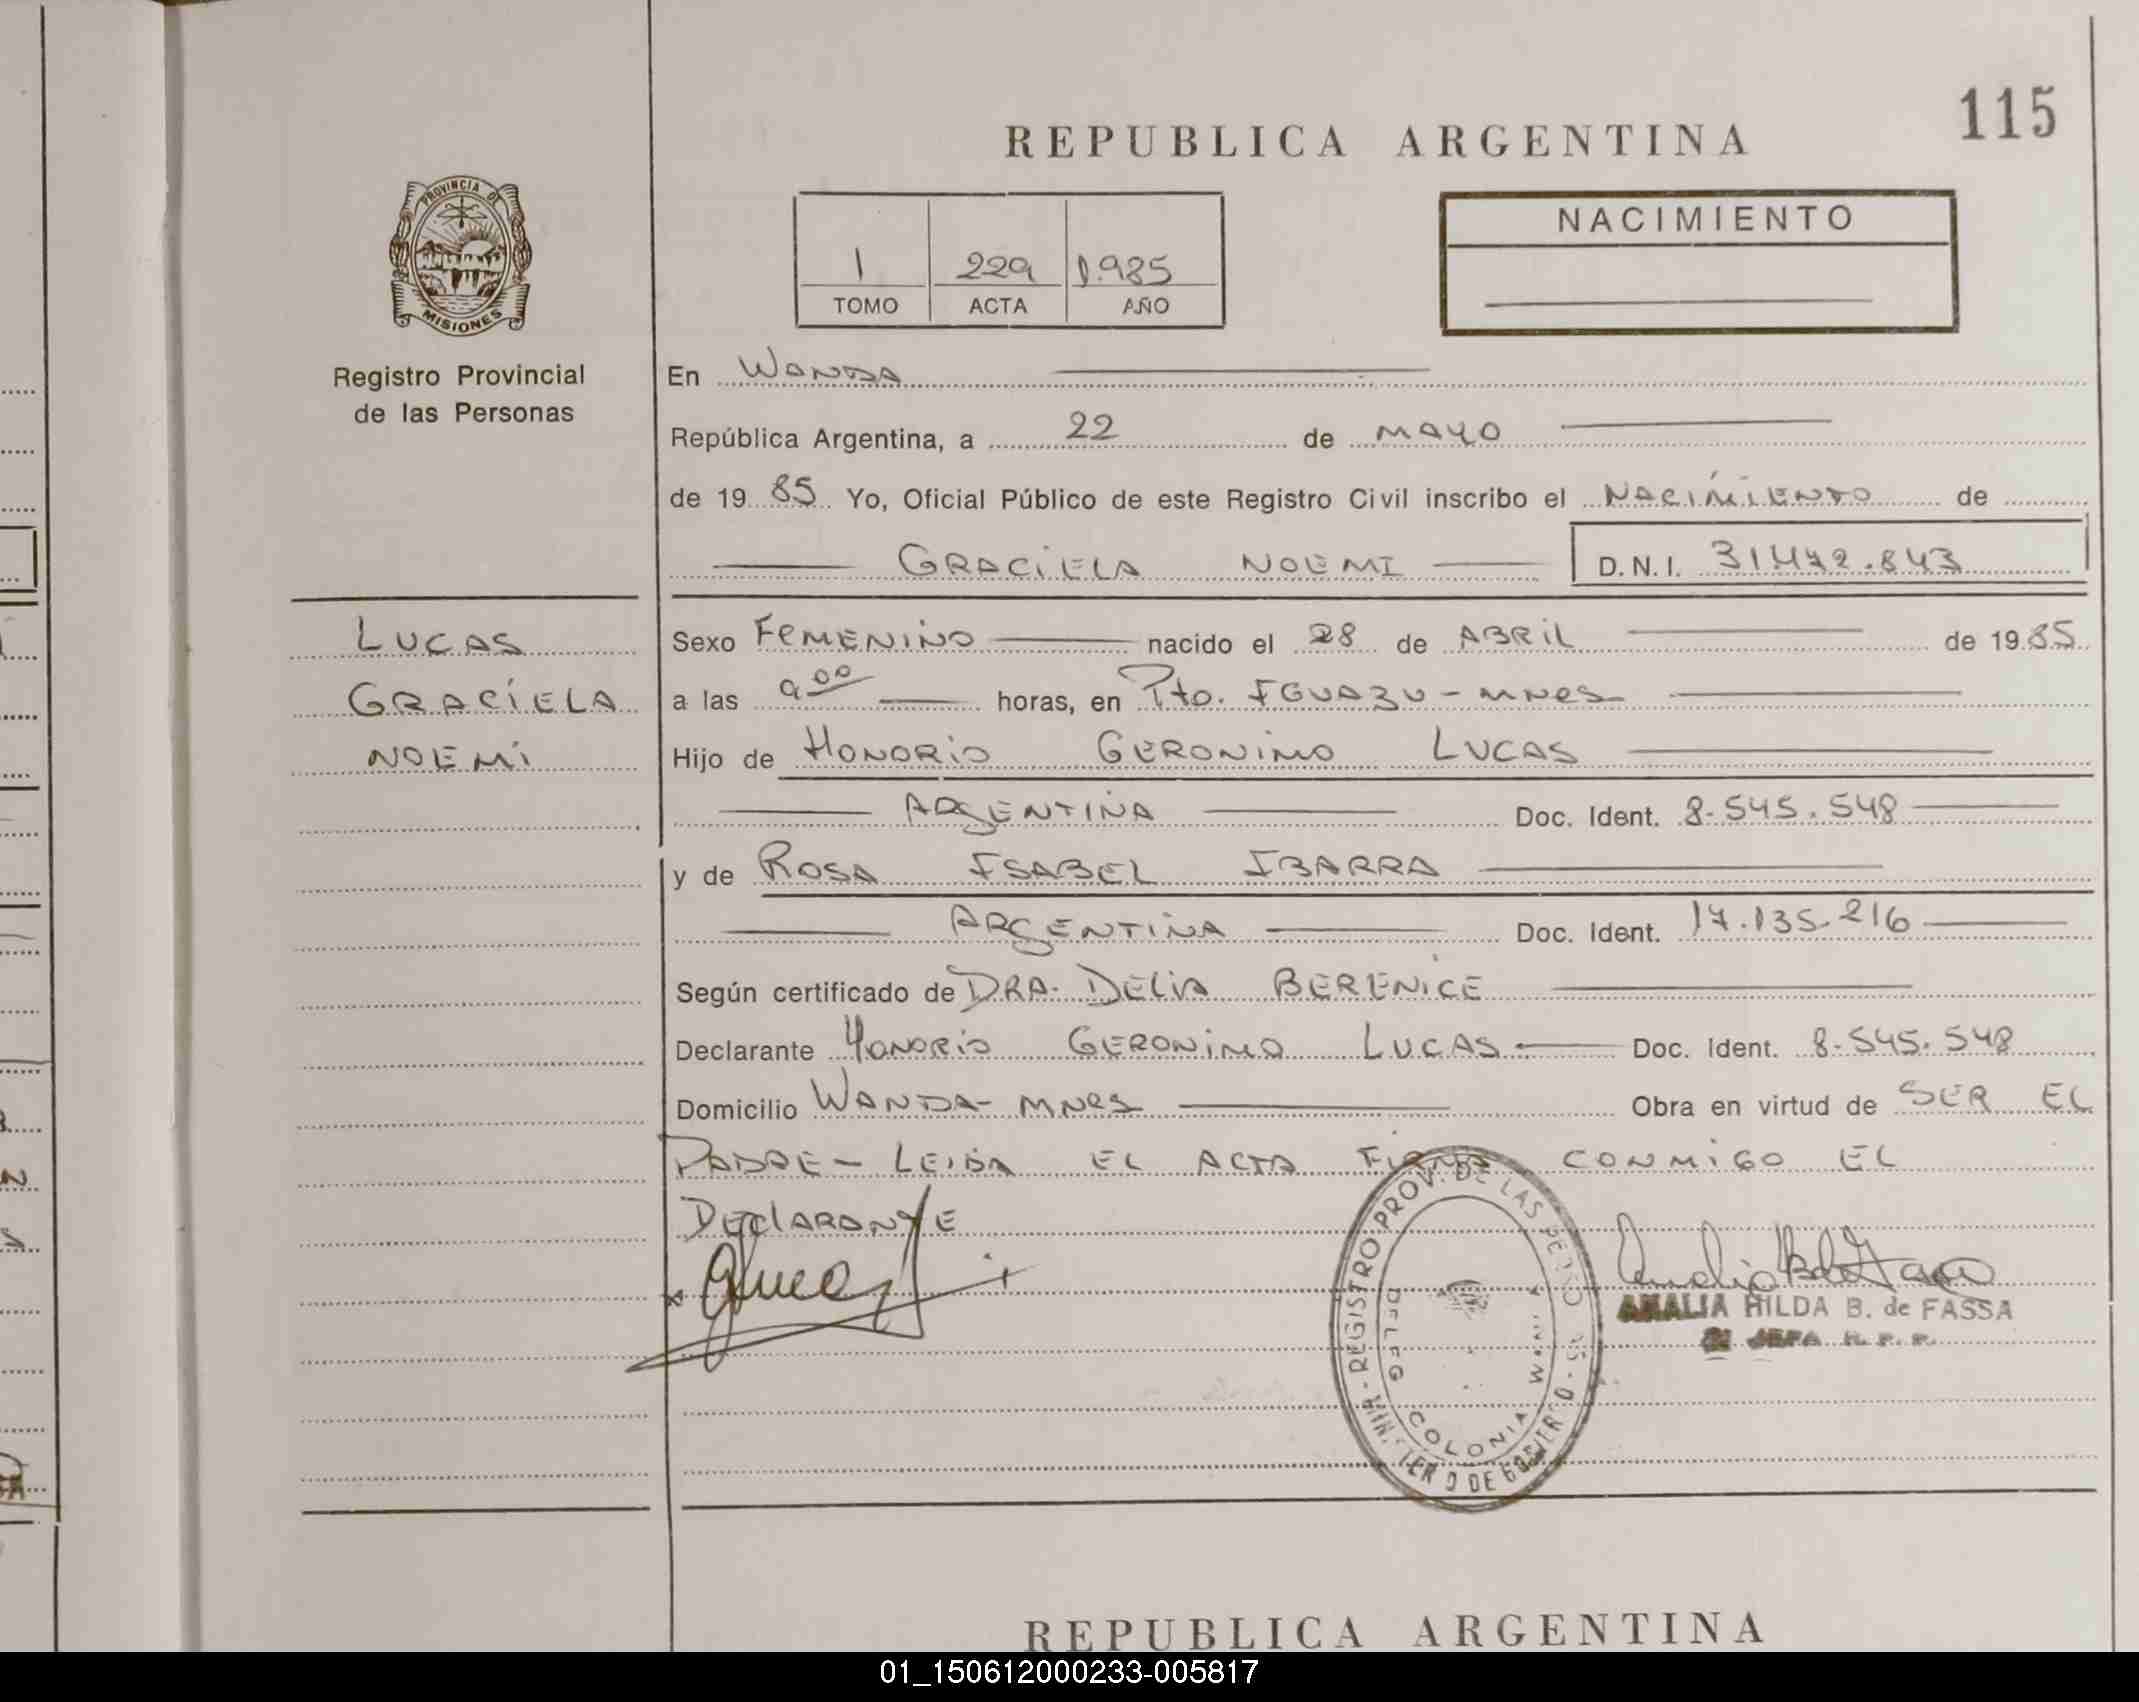 115
REPUBLICA ARGENTINA
PROVINCIA DE
MISIONES
Registro Provincial
de las Personas
1 229 1.985
TOMO ACTA AÑO
NACIMIENTO
En WANDA
República Argentina, a 22 de MAYO
de 19 85 Yo, Oficial Público de este Registro Civil inscribo el NACIMIENTO de
GRACIELA NOEMI D.N.I. 31.472.843
LUCAS
GRACIELA
NOEMI
Sexo FEMENINO nacido el 28 de ABRIL de 19 85
a las 9 00 horas, en Pto. IGUAZU - MNES
Hijo de HONORIO GERONIMO LUCAS
ARGENTINA Doc. Ident. 8.545.548
y de ROSA ISABEL IBARRA
ARGENTINA Doc. Ident. 17.135.216
Según certificado de DRA. DELIA BERENICE
Declarante HONORIO GERONIMO LUCAS Doc. Ident. 8.545.548
Domicilio WANDA - MNES Obra en virtud de SER EL
PADRE - LEIDA EL ACTA FIRMA CONMIGO EL
DECLARANTE
REGISTRO PROV. DE LAS
DELEG COLONIA
AMALIA HILDA B. de FASSA
JEFA R. P. P.
REPUBLICA ARGENTINA
01_150612000233-005817